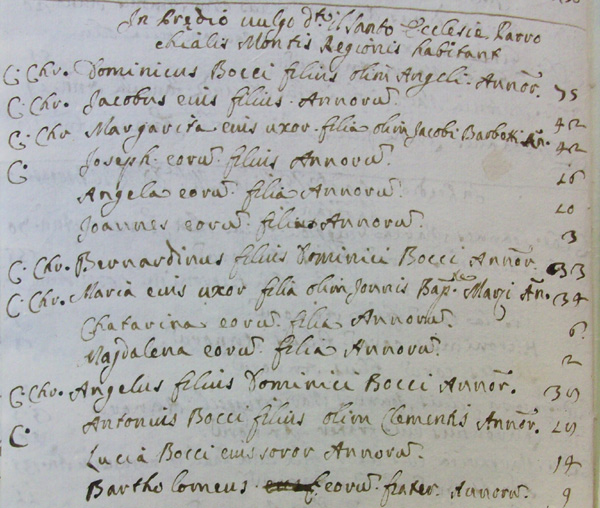 In Predio vulgo dto il Santo Ecclesie Parro
chialis Montis Regionis habitant
C. Chr. Dominicus Bocci filius olim Angeli Annor. 75
C. Chr. Jacobus eius filius Annorū. 42
C. Chr Margarita eius uxor filia olim Jacobi Barbotti An. 42
C. Joseph eorū filius Annorū. 16
Angela eorū filia Annorū. 10
Joannes eorū filius Annorū. 3
C. Chr. Bernardinus filius Dominici Bocci Annor. 33
C. Chr. Maria eius uxor filia olim Jonnis Bapte An. 34
Chatarina eorū filia Annorū. 6
Majdalena eorū filia Annorū. 2
C. Chr. Angelus filius Dominici Bocci Annor. 35
C. Antonius Bocci filius olim Clementis Annor. 25
Lucia Bocci eius soror Annorū. 14
Bartholomeus eorū frater Annorū. 9